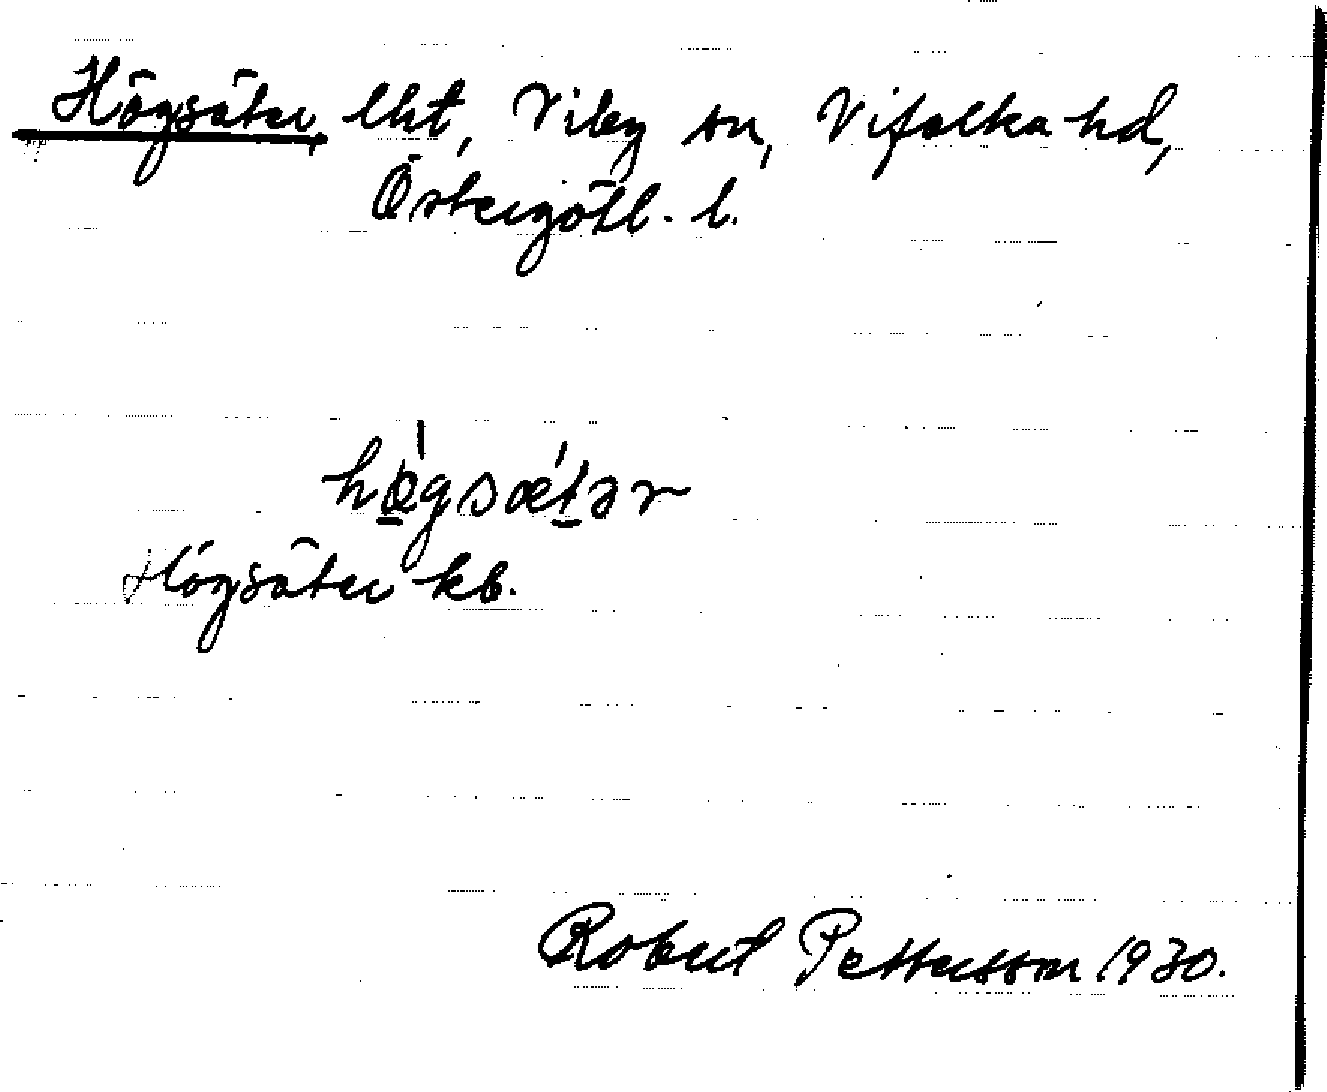 Högsäter lht, Viby sn, Vifolka hd,
Östergötl. l.
hø̱̀gsæ̀ṯər
Högsäter kb.
Robert Pettersson 1930.